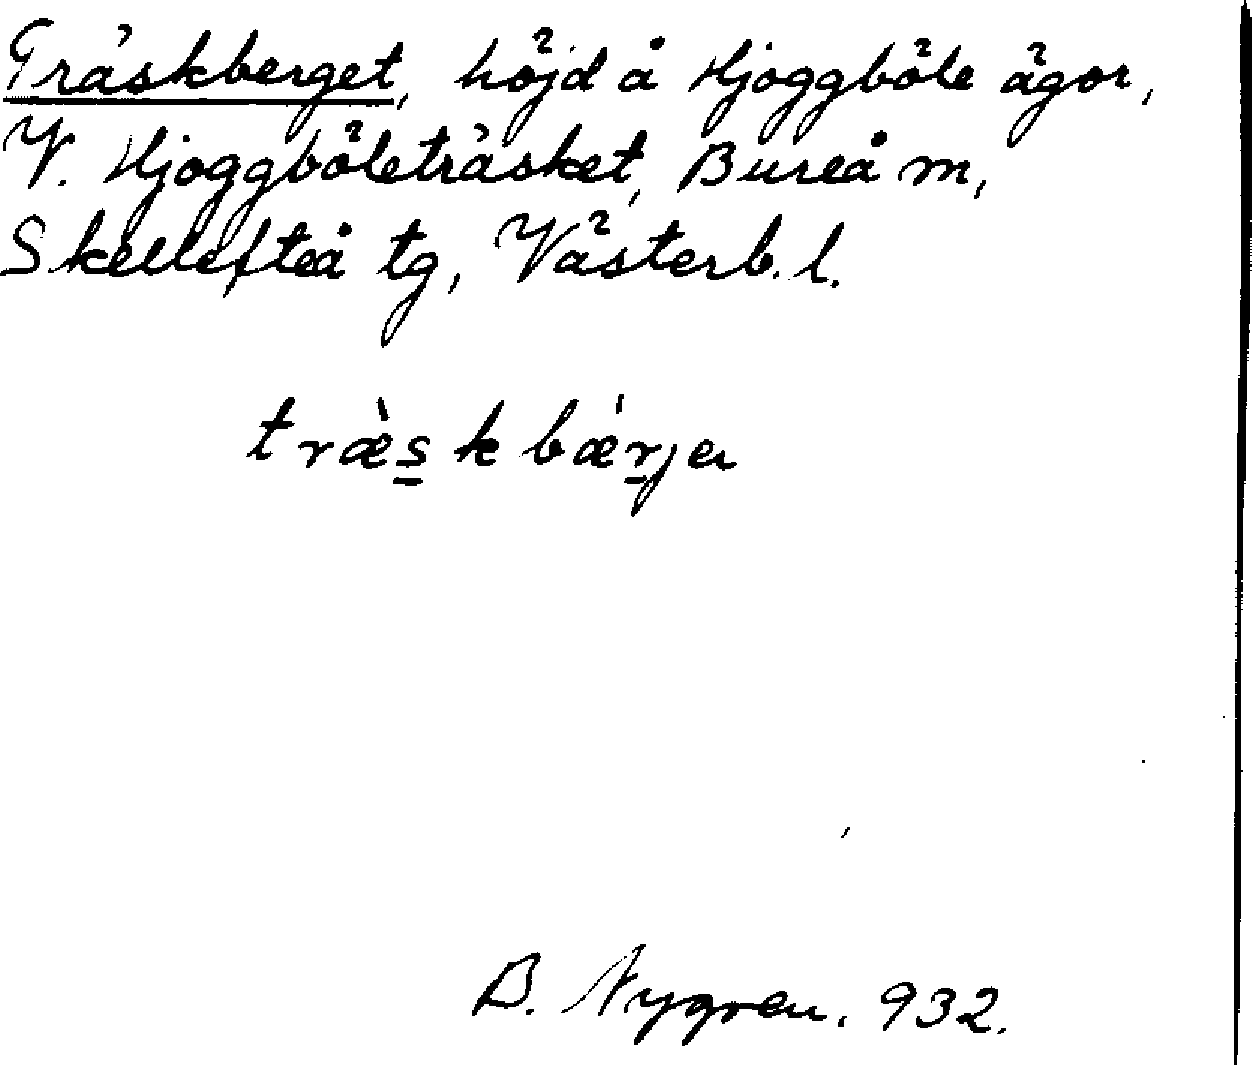 Träskberget, höjd å Hjoggböle ägor,
V. Hjoggböleträsket, Bureå m,
Skellefteå tg, Västerb. l.
træ̀s̲k bǽr̲jer
B. Nygren. 932.